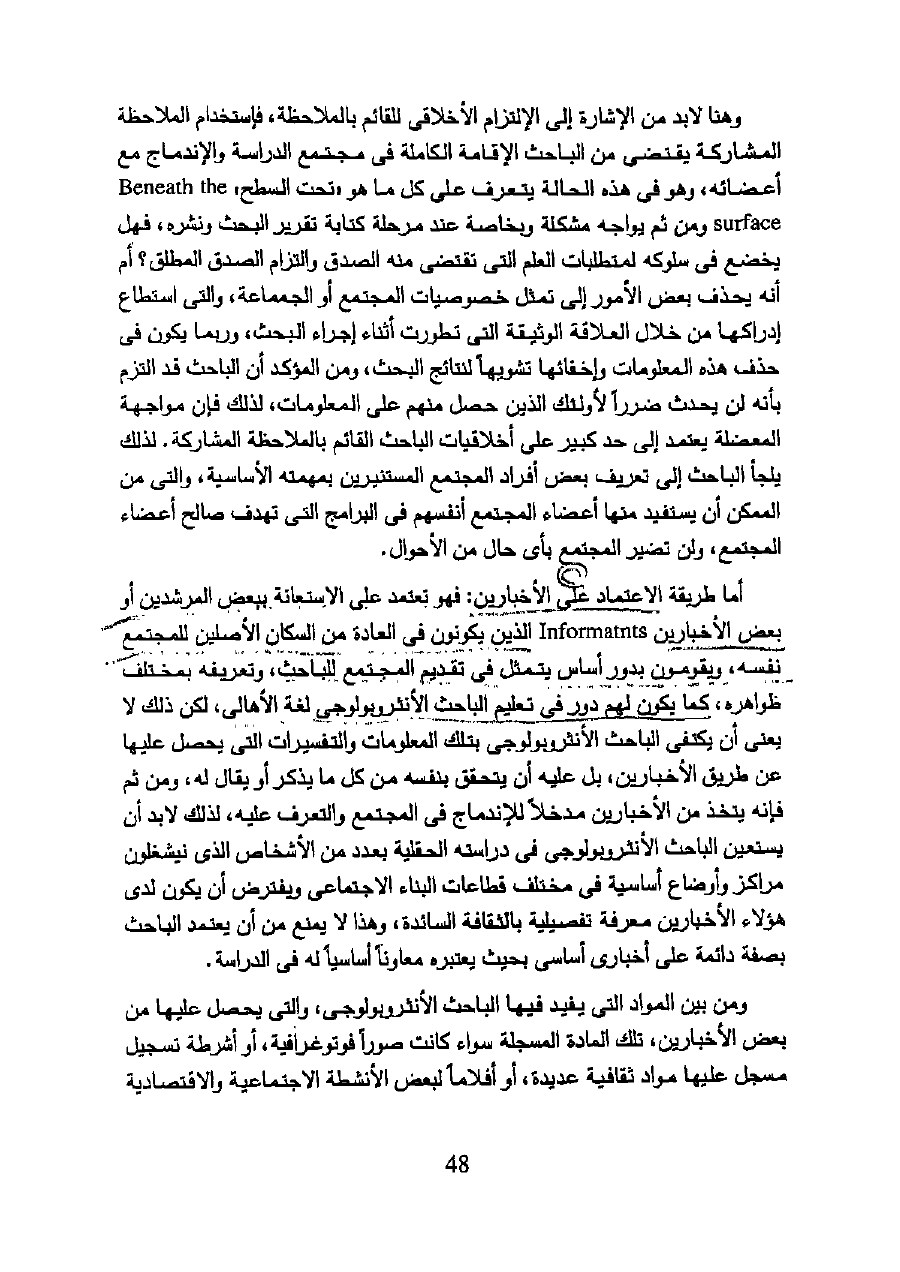 وهنا لابد من الإشارة إلى الإلتزام الأخلاقى للقائم بالملاحظة، فإستخدام الملاحظة
المشاركة يقتضى من الباحث الإقامة الكاملة فى مجتمع الدراسة والإندماج مع
أعضائه، وهو فى هذه الحالة يتعرف على كل ما هو «تحت السطح» Beneath the
surface ومن ثم يواجه مشكلة وبخاصة عند مرحلة كتابة تقرير البحث ونشره، فهل
يخضع فى سلوكه لمتطلبات العلم التى تقتضى منه الصدق والتزام الصدق المطلق؟ أم
أنه يحذف بعض الأمور إلى تمثل خصوصيات المجتمع أو الجماعة، والتى استطاع
إدراكها من خلال العلاقة الوثيقة التى تطورت أثناء إجراء البحث، وربما يكون فى
حذف هذه المعلومات وإخفائها تشويهاً لنتائج البحث، ومن المؤكد أن الباحث قد التزم
بأنه لن يحدث ضرراً لأولئك الذين حصل منهم على المعلومات، لذلك فإن مواجهة
المعضلة يعتمد إلى حد كبير على أخلاقيات الباحث القائم بالملاحظة المشاركة. لذلك
يلجأ الباحث إلى تعريف بعض أفراد المجتمع المستنيرين بمهمته الأساسية، والتى من
الممكن أن يستفيد منها أعضاء المجتمع أنفسهم فى البرامج التى تهدف صالح أعضاء
المجتمع، ولن تضير المجتمع بأى حال من الأحوال.
أما طريقة الاعتماد على الأخبارين: فهو تعتمد على الإستعانة ببعض المرشدين أو
بعض الأخبارين Informatnts الذين يكونون فى العادة من السكان الأصلين للمجتمع
نفسه، ويقومون بدور أساس يتمثل فى تقديم المجتمع للباحث، وتعريفه بمختلف
ظواهره، كما يكون لهم دور فى تعليم الباحث الأنثروبولوجى لغة الأهالى، لكن ذلك لا
يعنى أن يكتفى الباحث الأنثروبولوجى بتلك المعلومات والتفسيرات التى يحصل عليها
عن طريق الأخبارين، بل عليه أن يتحقق بنفسه من كل ما يذكر أو يقال له، ومن ثم
فإنه يتخذ من الأخبارين مدخلاً للإندماج فى المجتمع والتعرف عليه، لذلك لابد أن
يستعين الباحث الأنثروبولوجى فى دراسته الحقلية بعدد من الأشخاص الذى نيشغلون
مراكز وأوضاع أساسية فى مختلف قطاعات البناء الاجتماعى ويفترض أن يكون لدى
هؤلاء الأخبارين معرفة تفصيلية بالثقافة السائدة، وهذا لا يمنع من أن يعتمد الباحث
بصفة دائمة على أخبارى أساسى بحيث يعتبره معاوناً أساسياً له فى الدراسة.
ومن بين المواد التى يفيد فيها الباحث الأنثروبولوجى، والتى يحصل عليها من
بعض الأخبارين، تلك المادة المسجلة سواء كانت صوراً فوتوغرافية، أو أشرطة تسجيل
مسجل عليها مواد ثقافية عديدة، أو أفلاماً لبعض الأنشطة الاجتماعية والاقتصادية
48